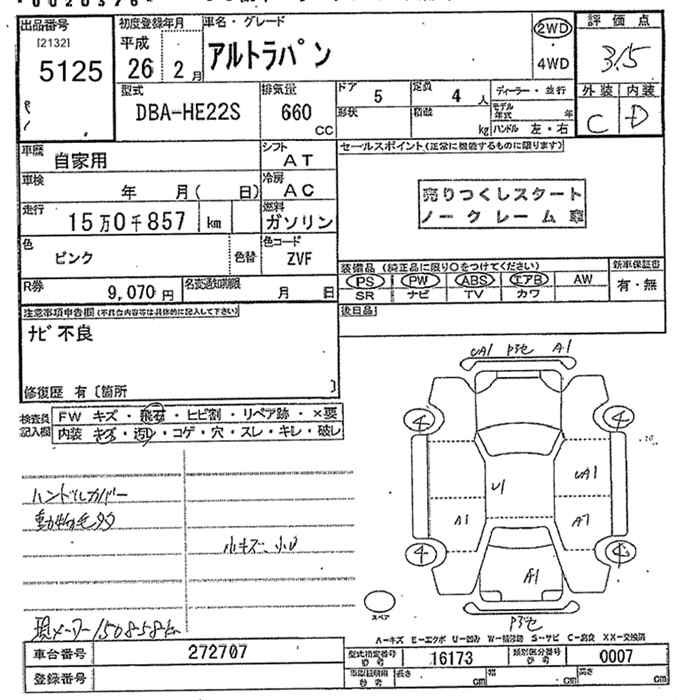 出品番号
[2132]
5125
初度登録年月
平成
26 2月
車名・グレード
アルトラパン
2WD
・
4WD
評価点
3.5
外装 内装
C D
型式
DBA-HE22S
排気量
660
CC
ドア
5
定員
4人
形状
積載
kg
ディーラー・並行
モデル年式 年
ハンドル 左・右
車歴
自家用
シフト
AT
車検
年 月( 日)
冷房
AC
走行
15万0千857 km
燃料
ガソリン
色
ピンク
色替
色コード
ZVF
R券
9,070円
名変通知期限
月 日
セールスポイント(正常に機能するものに限ります)
売りつくしスタート
ノークレーム車
装備品(純正品に限り〇をつけてください)
PS PW ABS エアB AW
SR ナビ TV カワ
新車保証書
有・無
後日品
注意事項申告欄(不具合内容等は具体的に記入して下さい)
ナビ不良
修復歴 有〔箇所 〕
検査員
記入欄
FW キズ・飛石・ヒビ割・リペア跡・×要
内装 キズ・汚れ・コゲ・穴・スレ・キレ・破レ
ハンドルカバー
小キズ、小U
UA1 A1
4 4
UA1
U1
A1 A1
4 4
A1
スペア
A-キズ E-エクボ U-凹み W-補修跡 S-サビ C-腐食 XX-交換済
車台番号
272707
登録番号
型式指定番号
参考
16173
類別区分番号
参考
0007
長さ cm
幅 cm
高さ cm